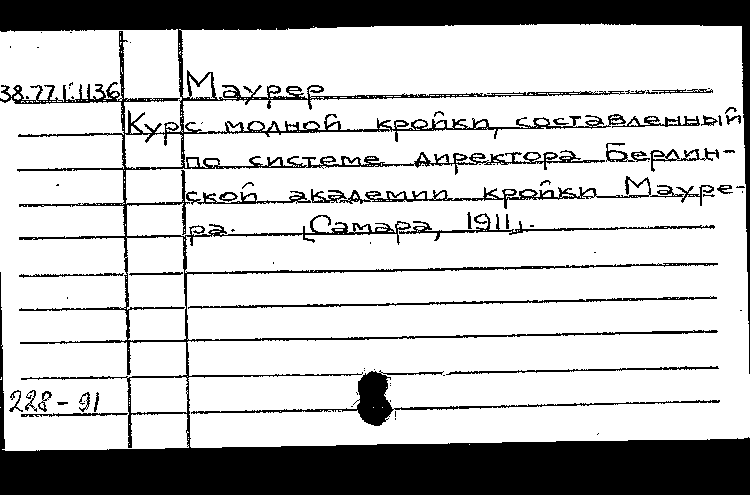 38.77.1.1136 Маурер
Курс модной кройки, составленный
по системе директора Берлин-
ской академии кройки Мауре-
ра. [Самара, 1911].
228-91